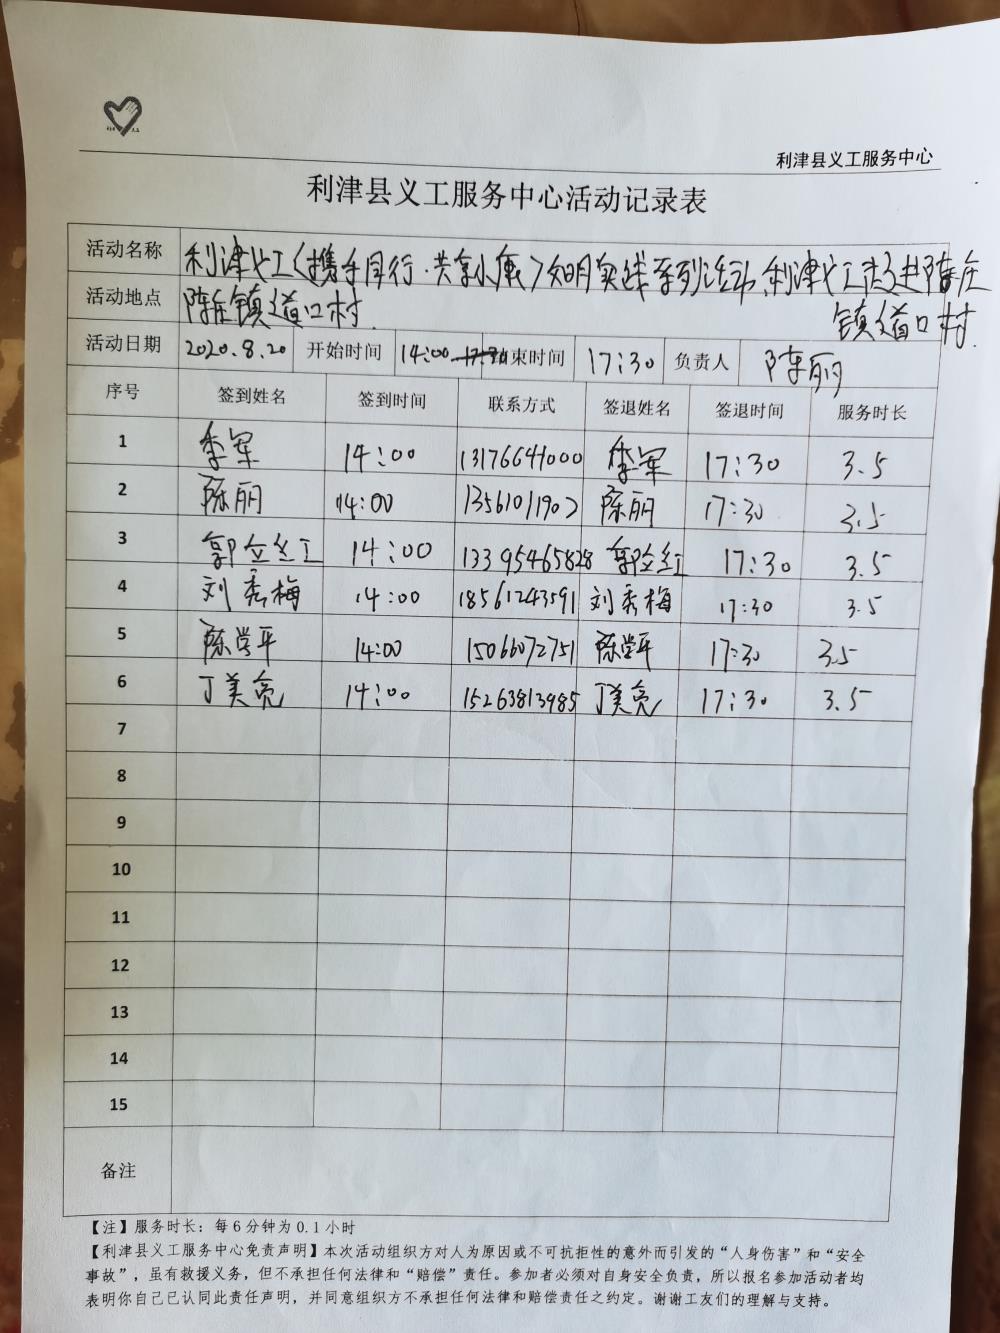 利津县义工服务中心
利津县义工服务中心活动记录表
活动名称 利津义工《携手同行·共享小康》文明实践系列活动,利津义工走进陈庄
镇道口村
活动地点 陈庄镇道口村
活动日期 2020.8.20 开始时间 14:00 结束时间 17:30 负责人 陈丽
序号 签到姓名 签到时间 联系方式 签退姓名 签退时间 服务时长
1 李军 14:00 13176641000 李军 17:30 3.5
2 陈丽 14:00 13561011902 陈丽 17:30 3.5
3 郭立红 14:00 13395465828 郭立红 17:30 3.5
4 刘秀梅 14:00 18561243591 刘秀梅 17:30 3.5
5 陈学平 14:00 15066072751 陈学平 17:30 3.5
6 丁美亮 14:00 15263813985 丁美亮 17:30 3.5
7
8
9
10
11
12
13
14
15
备注
【注】服务时长:每6分钟为0.1小时
【利津县义工服务中心免责声明】本次活动组织方对人为原因或不可抗拒性的意外而引发的“人身伤害”和“安全
事故”,虽有救援义务,但不承担任何法律和“赔偿”责任。参加者必须对自身安全负责,所以报名参加活动者均
表明你自己已认同此责任声明,并同意组织方不承担任何法律和赔偿责任之约定。谢谢工友们的理解与支持。